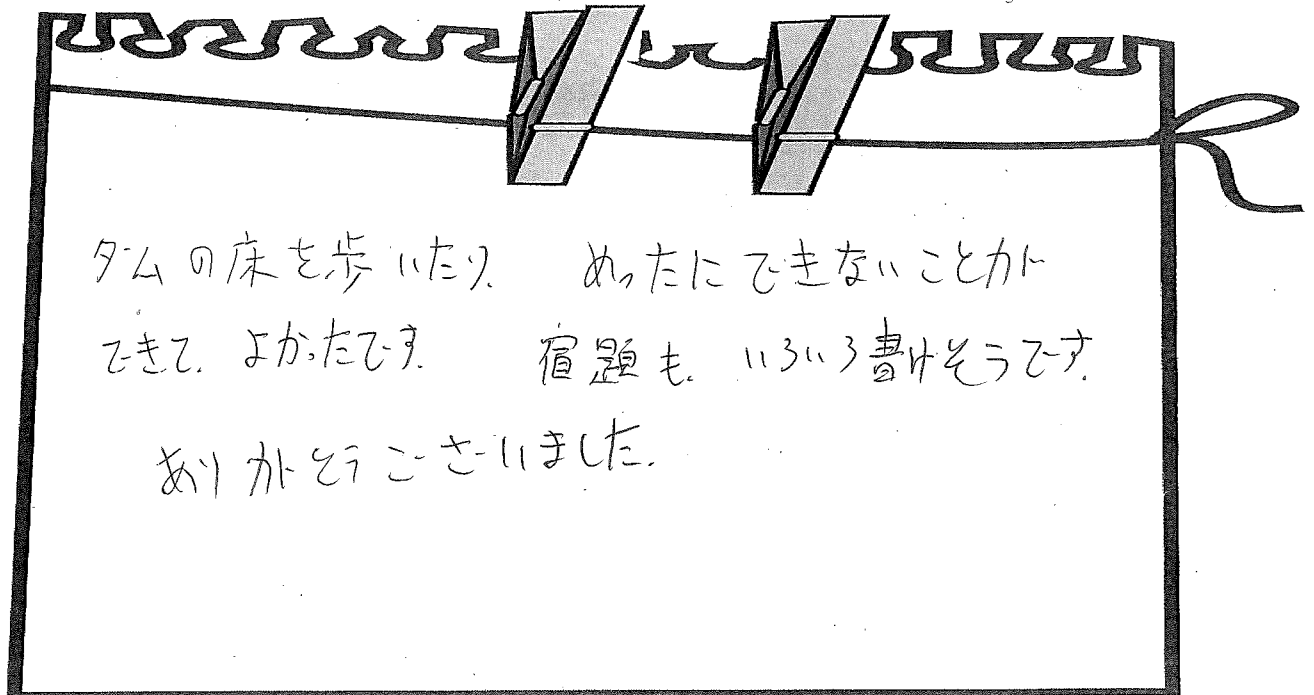 ダムの床を歩いたり、めったにできないことが
できて、よかったです。宿題も、いろいろ書けそうです。
ありがとうございました。